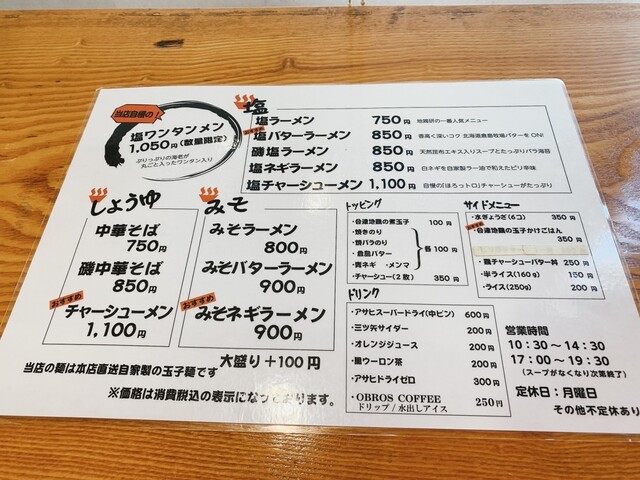 当店自慢の!
塩ワンタンメン
1,050円(数量限定)
ぷりっぷりの海老が
丸ごと入ったワンタン入り
塩
塩ラーメン 750円 地鶏研の一番人気メニュー
おすすめ
塩バターラーメン 850円 香高く深いコク 北海道鹿島牧場バターをON!
磯塩ラーメン 850円 天然昆布エキス入りスープとたっぷりバラ海苔
塩ネギラーメン 850円 白ネギを自家製ラー油で和えたピリ辛味
塩チャーシューメン 1,100円 自慢の「ほろっトロ」チャーシューがたっぷり
しょうゆ
中華そば
750円
磯中華そば
850円
おすすめ
チャーシューメン
1,100円
みそ
みそラーメン
800円
みそバターラーメン
900円
おすすめ
みそネギラーメン
900円
トッピング
・会津地鶏の煮玉子 100円
・焼きのり
・焼バラのり
・鹿島バター
・青ネギ ・メンマ
各100円
・チャーシュー(2枚) 350円
サイドメニュー
・水ぎょうざ(6コ) 350円
おすすめ
・会津地鶏の玉子かけごはん
350円
・鶏チャーシューバター丼 250円
・半ライス(160g) 150円
・ライス(250g) 200円
ドリンク
・アサヒスーパードライ(中ビン) 600円
・三ツ矢サイダー 200円
・オレンジジュース 200円
・黒ウーロン茶 200円
・アサヒドライゼロ 300円
・OBROS COFFEE
ドリップ/水出しアイス 250円
営業時間
10:30~14:30
17:00~19:30
(スープがなくなり次第終了)
定休日:月曜日
その他不定休あり
大盛り+100円
当店の麺は本店直送自家製の玉子麺です
※価格は消費税込の表示になっております。